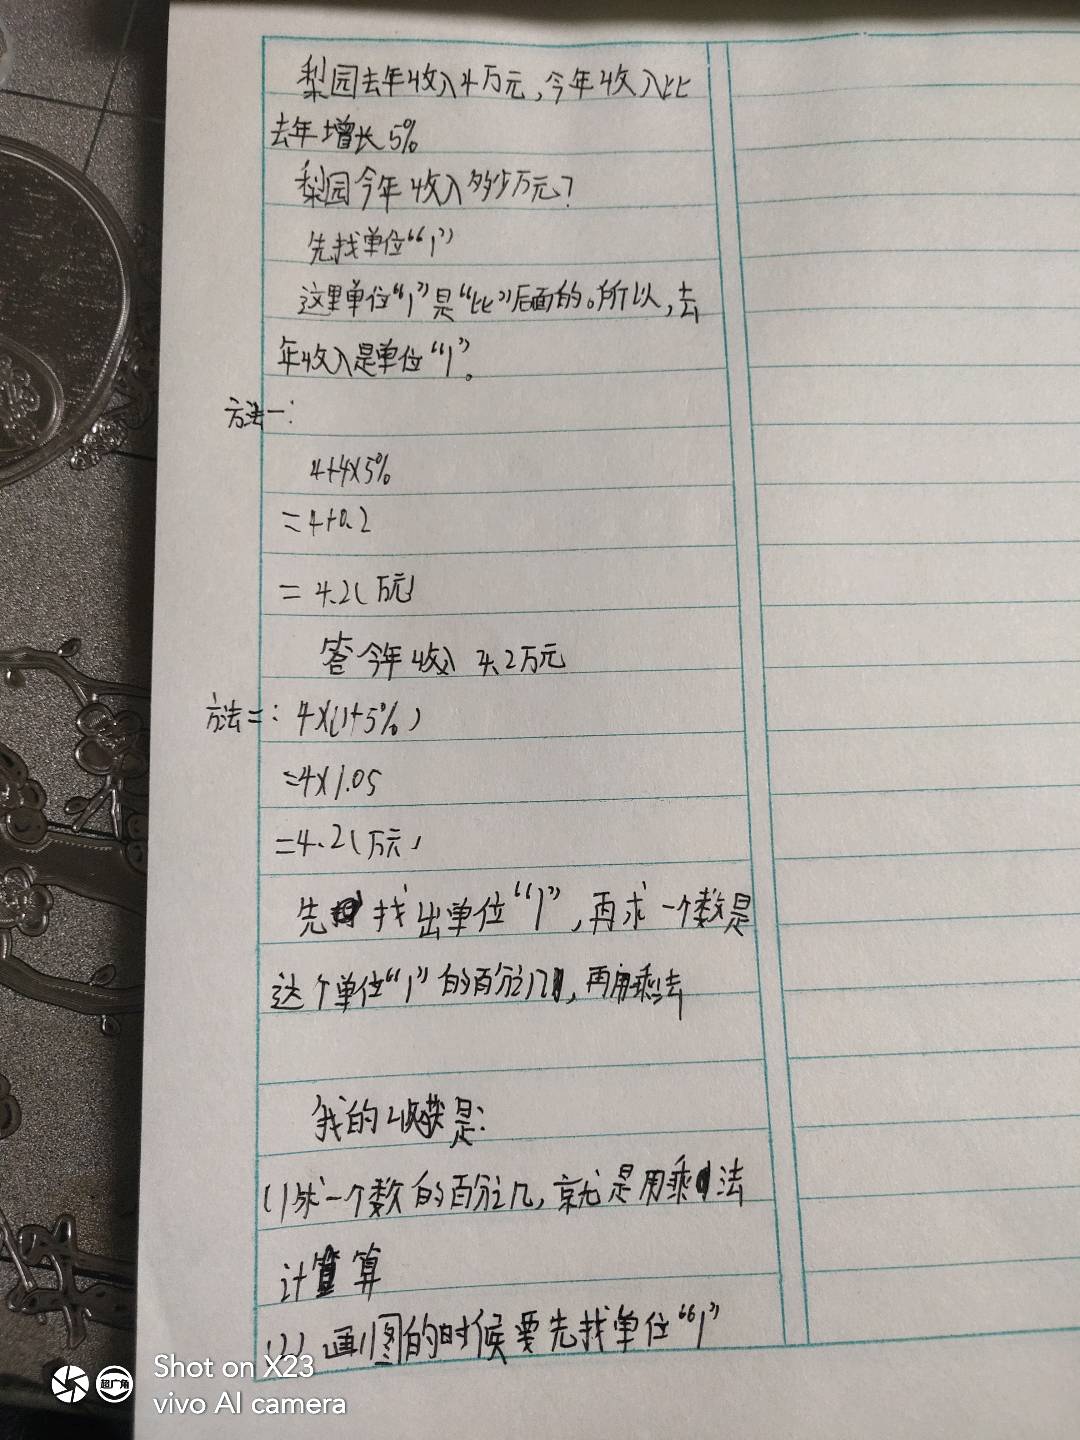 梨园去年收入4万元,今年收入比
去年增长5%
梨园今年收入多少万元?
先找单位“1”
这里单位“1”是“比”后面的。所以,去
年收入是单位“1”。
方法一:
4+4×5%
=4+0.2
=4.2(万元)
答今年收入4.2万元
方法二:4×(1+5%)
=4×1.05
=4.2(万元)
先找出单位“1”,再求一个数是
这个单位“1”的百分几,再用乘法
我的收获是:
(1)求一个数的百分几,就是用乘法
计算
(2)画图的时候要先找单位“1”
Shot on X23
超广角
vivo AI camera